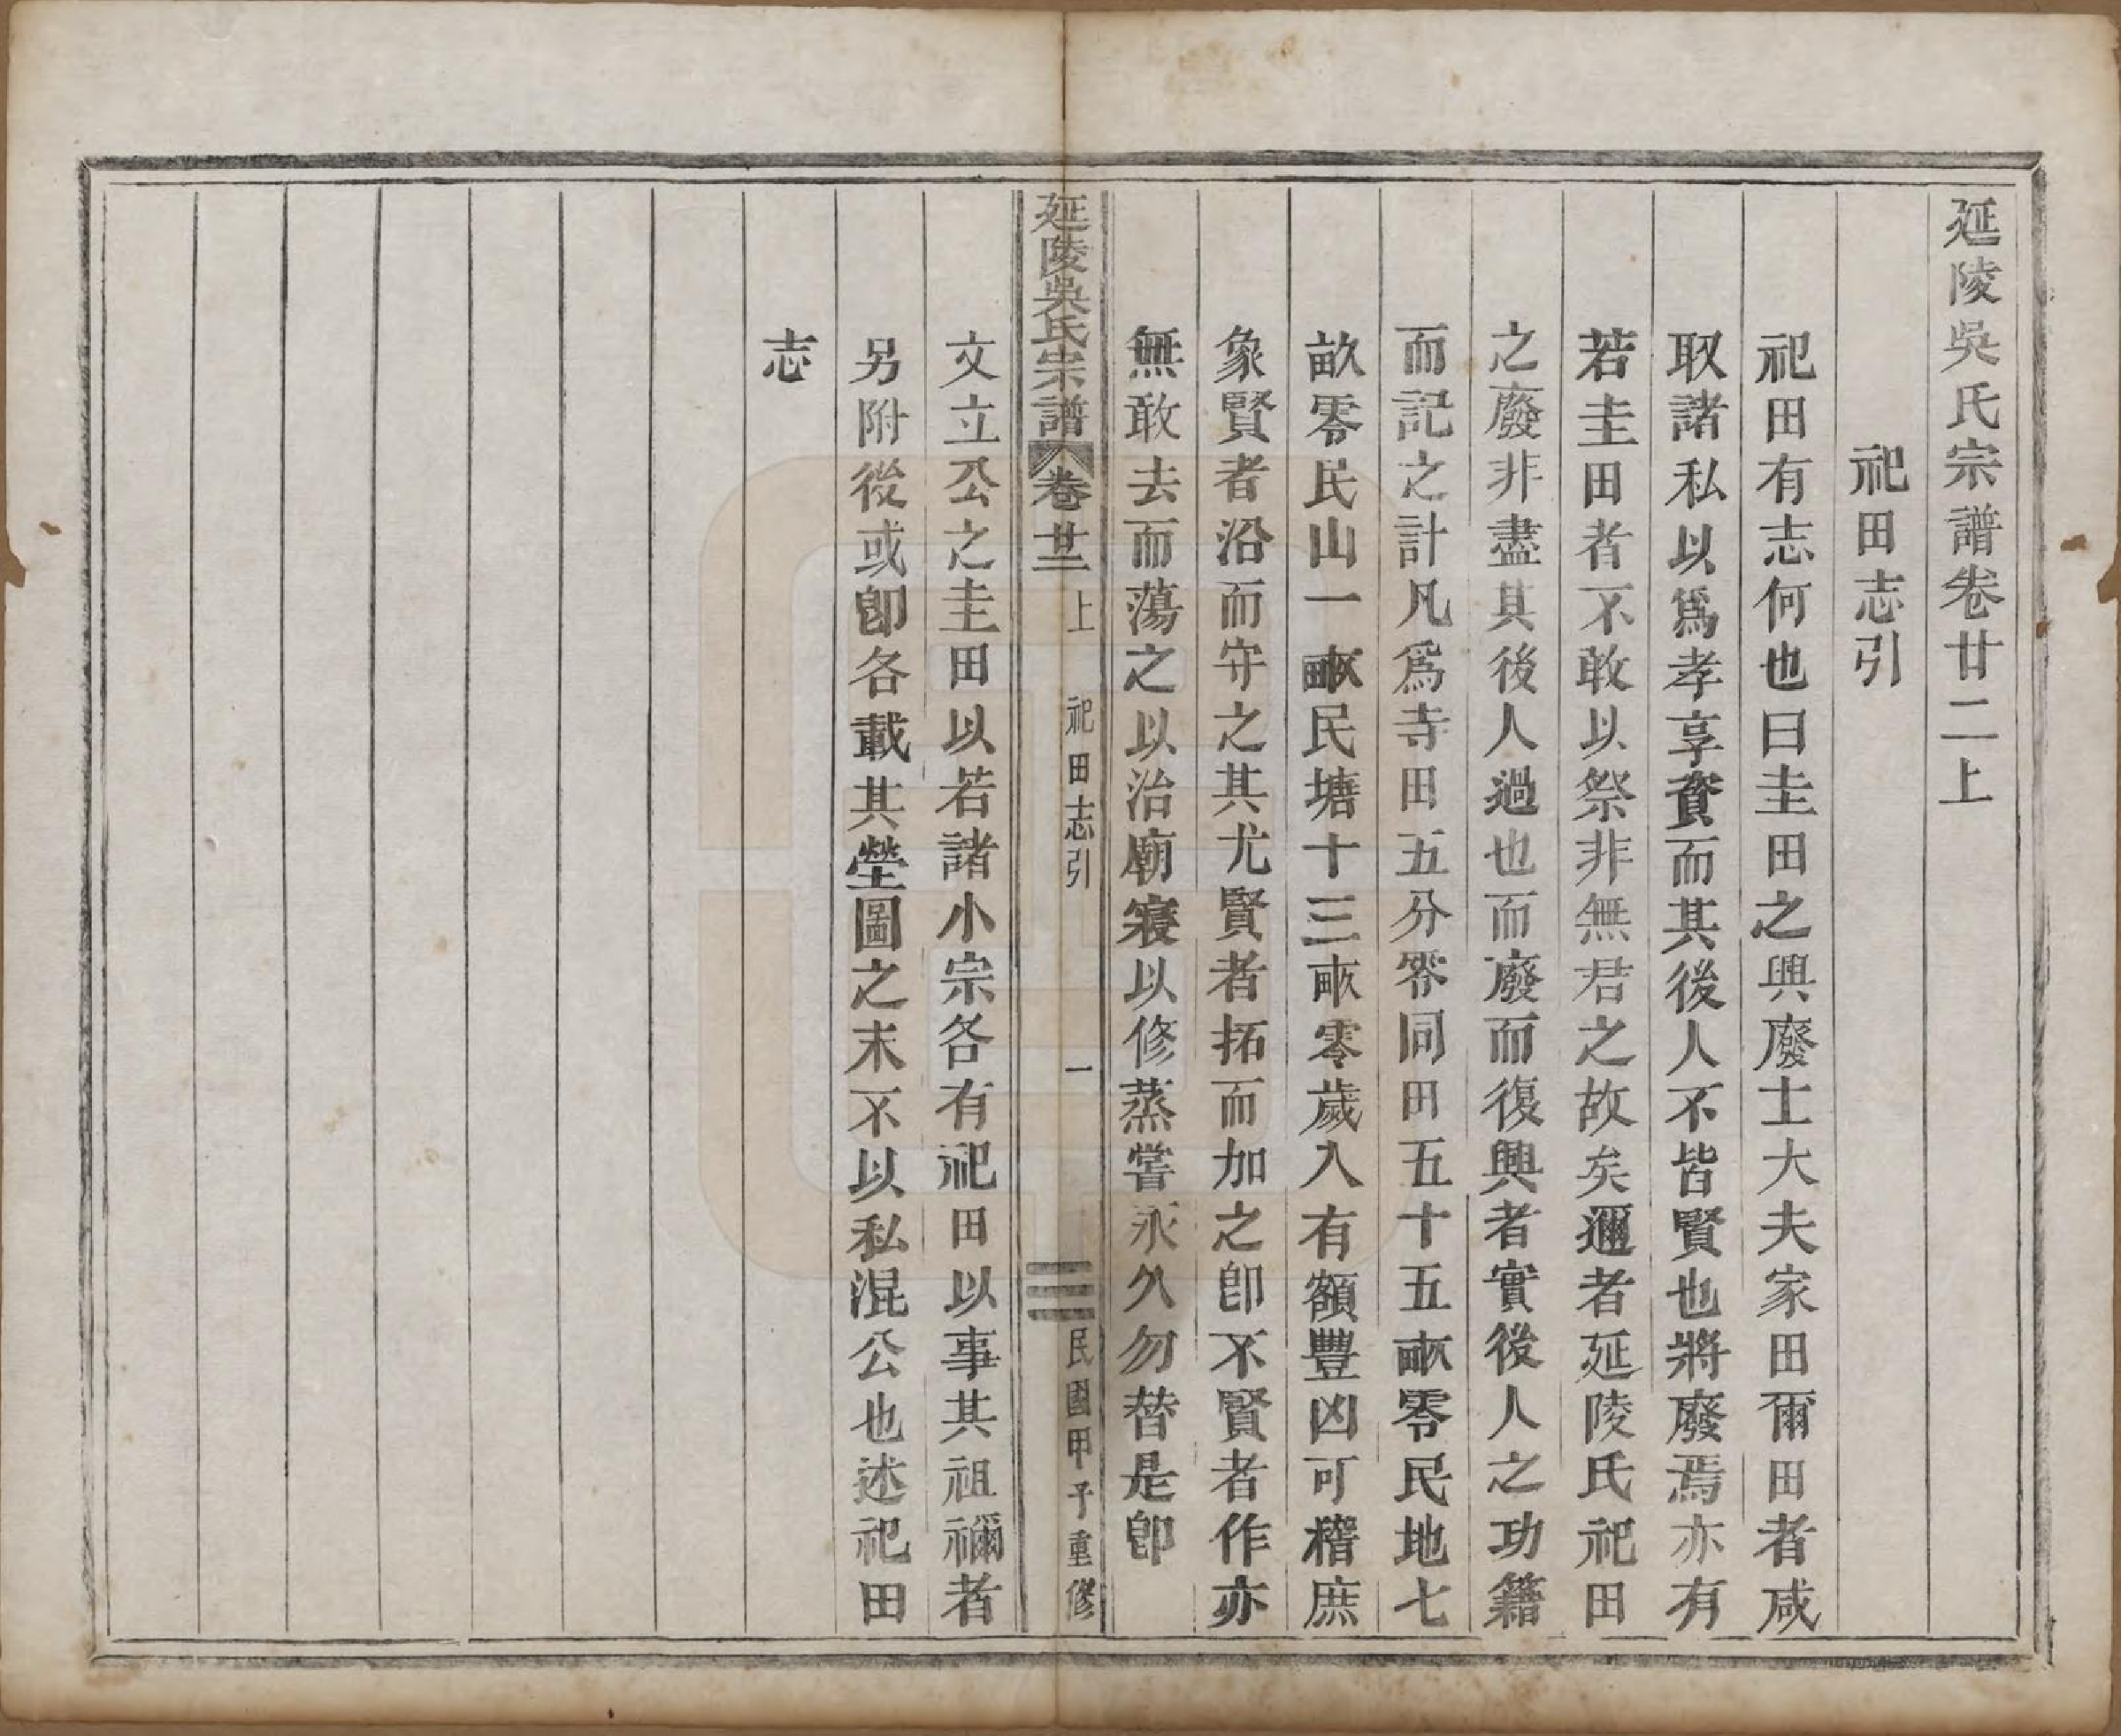 延陵吳氏宗譜卷廿二上
祀田志引
祀田有志何也曰圭田之興廢士大夫家田爾田者咸
取諸私以爲孝享資而其後人不皆賢也將廢焉亦有
若圭田者不敢以祭非無君之故矣邇者延陵氏祀田
之廢非盡其後人過也而廢而復興者實後人之功籍
而記之計凡爲寺田五分零同田五十五畝零民地七
畝零民山一畝民塘十三畝零歲入有額豐凶可稽庶
象賢者沿而守之其尤賢者拓而加之卽不賢者作亦
無敢去而蕩之以治廟寢以修蒸嘗永久勿替是卽
延陵吳氏宗譜 卷廿二 上 祀田志引 一 民國甲子重修
文立公之圭田以若諸小宗各有祀田以事其祖禰者
另附後或卽各載其塋圖之末不以私混公也述祀田
志